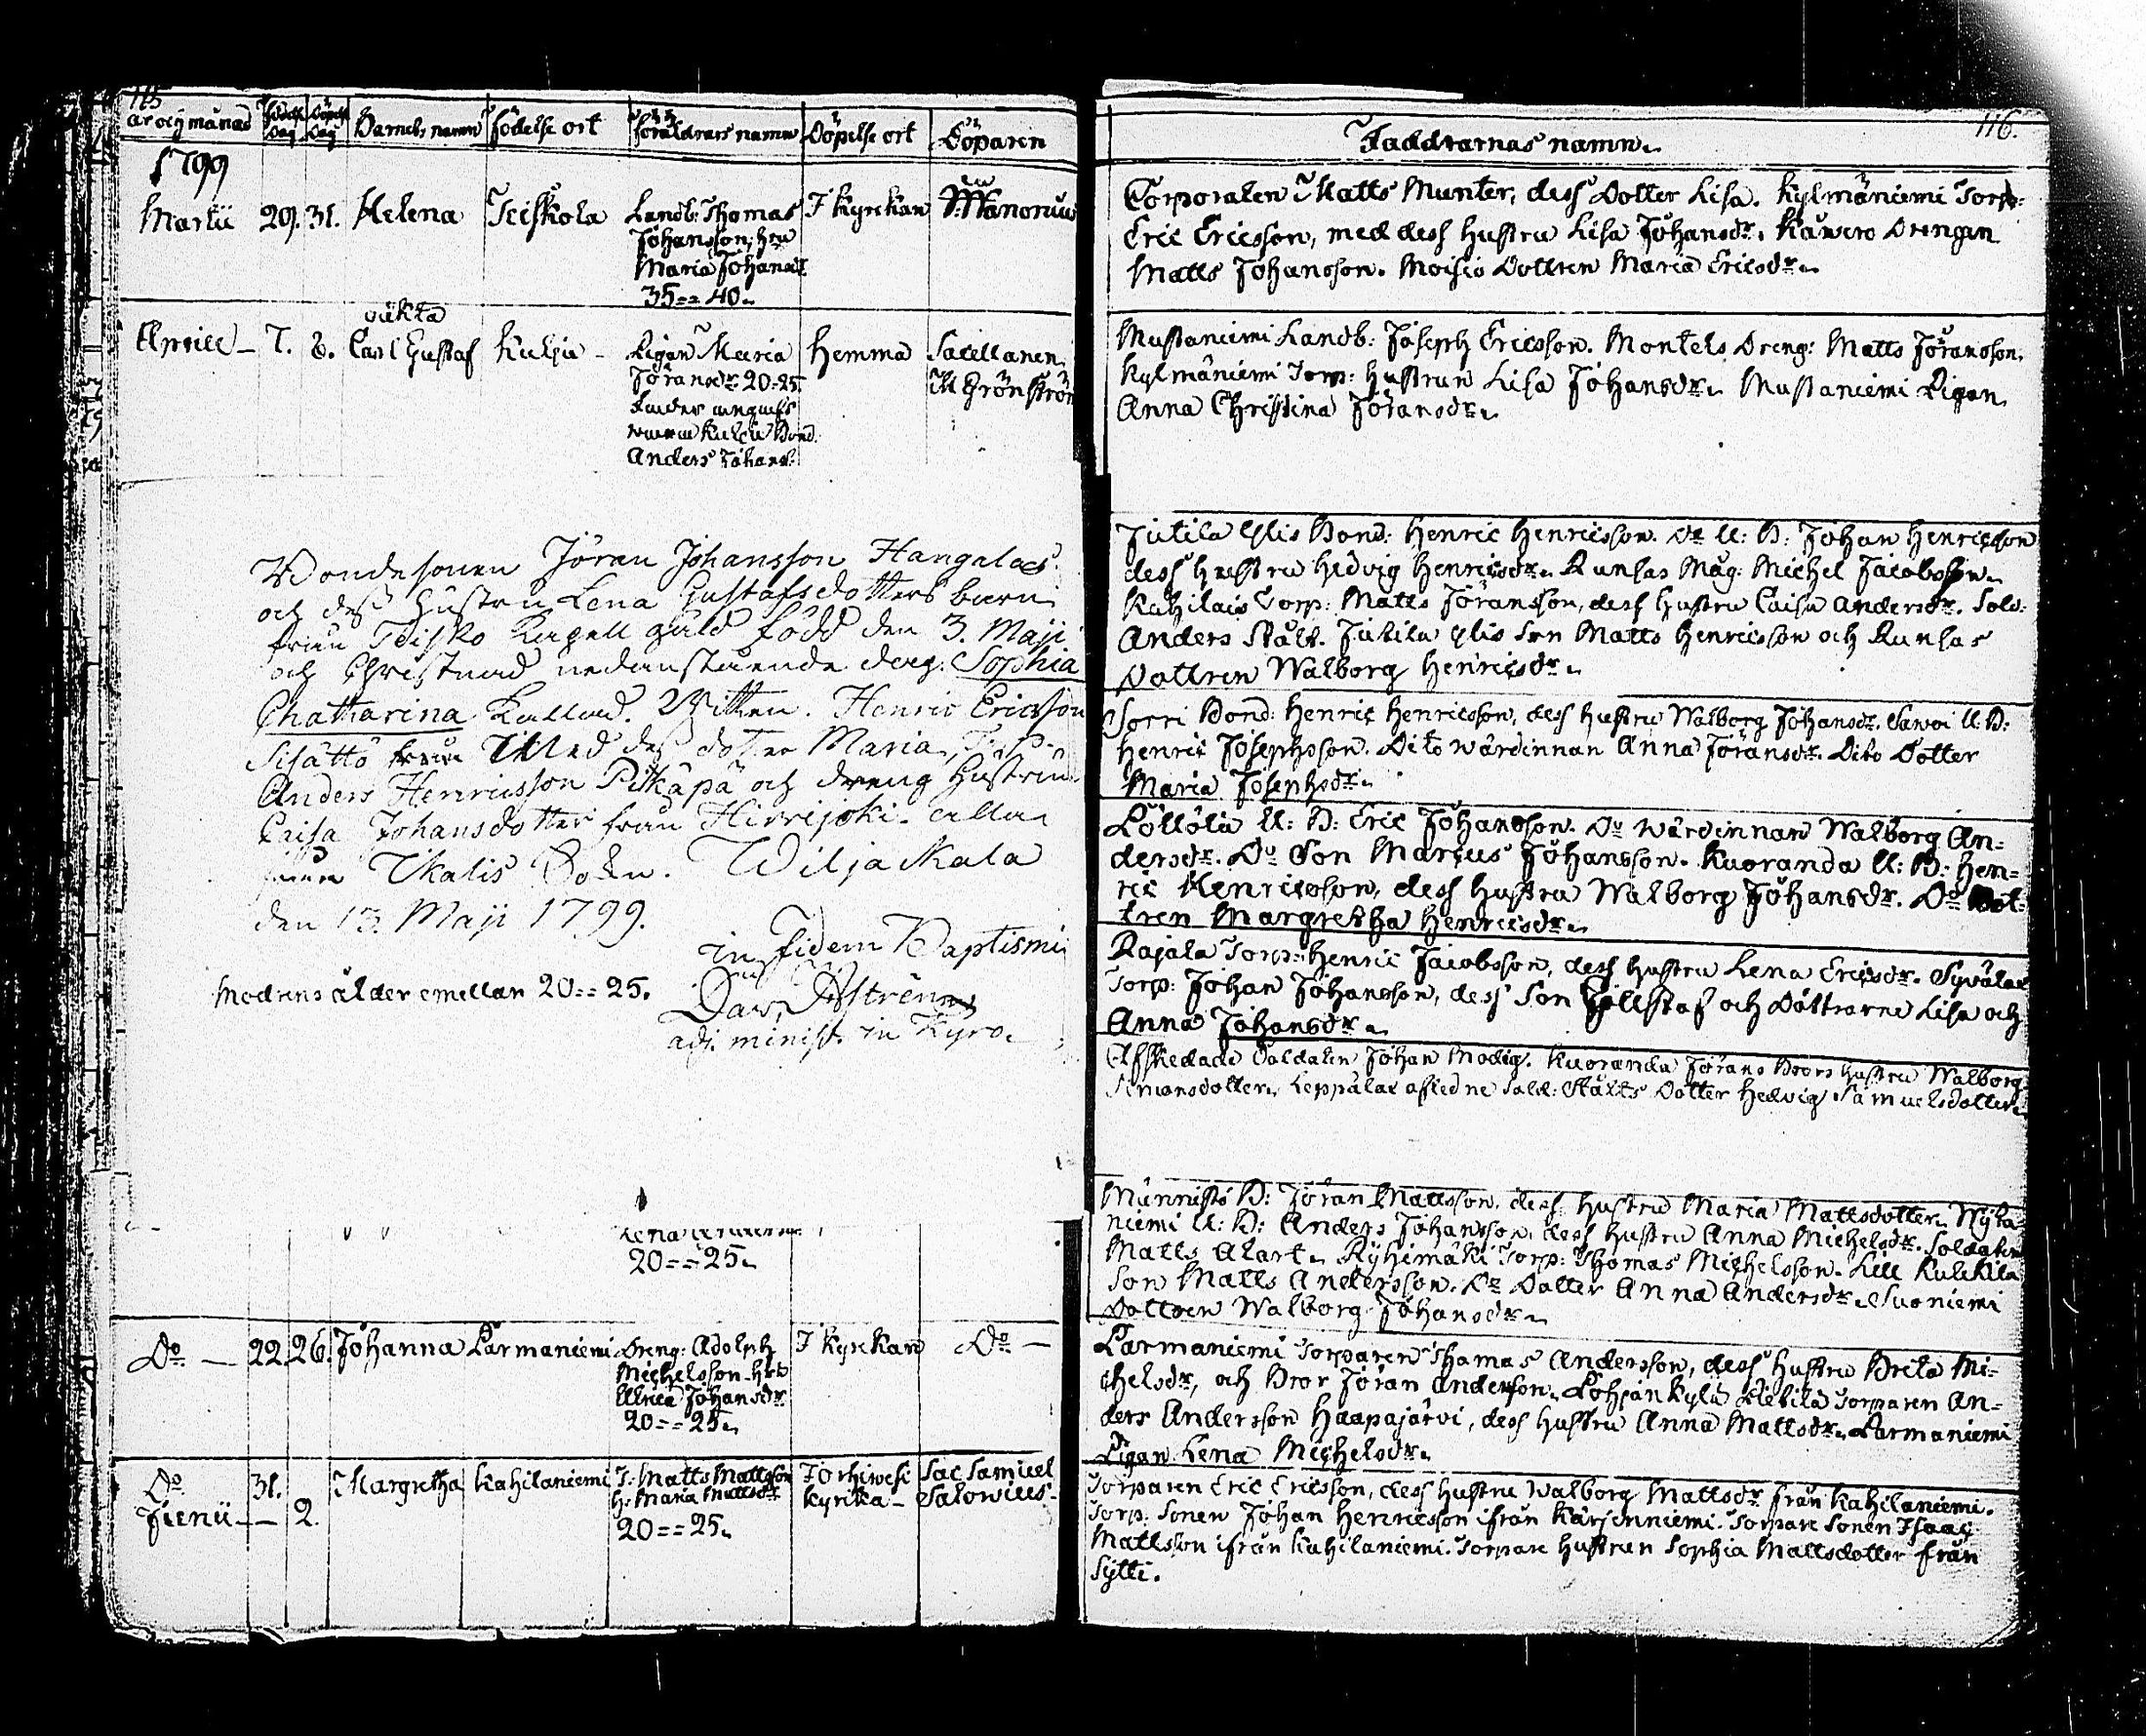 115
År och månad Födelse Dag Döpelse Dag Barnets namn Födelse ort Föräldrars namn Döpelse ort Döparen
1799
Martii 29. 31. Helena Teiskola Landb: Thomas I Kyrckan
Johansson, hru
Maria Johansdr
35 = = 40.
oäkta
Aprill — 7. 8. Carl Gustaf Kulju — Pigan Maria Hemma Sacellanen
Jöransdr 20=25 M Grönström
Fader
Bond.
Anders Johans:
Bondesonen Jöran Johansson Hangalas
och dess Hustru Lena Gustafsdotters barn
från Teisko Kapell guld född den 3. Maji
och Christnad nedanstående dag. Sophia
Chatharina Kallad. Vittnen. Henric Ericsson
Sisättö från med dess dotter Maria,
Anders Henricsson Pitkäpä och dreng Hustrun
Caisa Johansdotter från Hirvijoki. alla
från Ikalis Sokn. Wiljackala
den 13. Maji 1799.
in fidem Baptismi
Modrens ålder emellan 20 = = 25.
Dav. Åström
adj. minist. in Kyro.
20 = = 25.
Do — 22. 26. Johanna Parmaniemi Dreng: Adolph I Kyrckan Do —
Michelsson, hru
Ulrica Johansdr
20 = = 25.
Do 31. Margretha Kahilaniemi T: Matts Mattsson Torhiwesi Sac Samuel
Junii — — 2. h: Maria Mattsdr Kyrcka — Salovius —
20 = = 25.
116.
Faddrarnas namn.
Corporalen Matts Munter, dess Dotter Lisa. Kylmäniemi Torp:
Eric Ericsson, med dess hustru Lisa Johansdr. Kauvero Drengen
Matts Johansson. Moisio Dottren Maria Ericsdr.
Mustaniemi Landb: Joseph Ericsson. Montels Dreng: Matts Jöransson.
Kylmäniemi Torp: hustrun Lisa Johansdr. Mustaniemi Pigan
Anna Christina Jöransdr.
Jutila Ylis Bond: Henric Henricsson. Do U: B: Johan Henricsson
dess hustru Hedvig Henricsdr. Runsas Måg: Michel Jacobsson.
Kahilais Torp: Matts Jöransson, dess hustru Caisa Andersdr. Sold:
Anders Stålt. Jutila Ylis Son Matts Henricsson och Runsas
Dottren Walborg Henricsdr.
Sorri Bond: Henric Henricsson, dess hustru Walborg Johansdr. Savoi U: B:
Henric Josephsson. Dito wärdinnan Anna Jöransdr. Dito Dotter
Maria Josephsdr.
Löllölä U: B: Eric Johansson. Do Wärdinnan Walborg An=
dersdr. Do Son Marcus Johansson. Kuoranda U: B: Hen=
ric Henricsson, dess hustru Walborg Johansdr. Do Dot=
tren Margretha Henricsdr.
Rajala Torp: Henric Jacobsson, dess hustru Lena Ericsdr. Syvälax
Torp: Johan Johansson, dess Son Gustaf och Döttrarne Lisa och
Anna Johansdr.
Afskedade Soldaten Johan Modig. Kuoranda Jörans Brors hustru Walborg
Simonsdotter, Leppälax aflednе Sold: Stålts Dotter Hedvig Samuelsdotter.
Männistö B: Jöran Mattsson, dess hustru Maria Mattsdotter. Wyha=
niemi U: B: Anders Johansson, dess hustru Anna Michelsdr. Soldaten
Matts Alart. Ryhimäki Torp: Thomas Michelsson. Lill Kulckila
Son Matts Andersson. Do Dotter Anna Andersdr. Suoniemi
Dottren Walborg Johansdr.
Parmaniemi Torparen Thomas Andersson, dess hustru Breta Mi=
chelsdr, och Bror Jöran Andersson. Pohjankylä Torparen An=
ders Andersson Haapajärvi, dess hustru Anna Mattsdr. Parmaniemi
Pigan Lena Michelsdr.
Torparen Eric Ericsson, dess hustru Walborg Mattsdr från Kahilaniemi.
Torp: Sonen Johan Henricsson ifrån Kärjenniemi. Torpare Sonen Isaac
Mattsson ifrån Kahilaniemi. Torpare hustrun Sophia Mattsdotter från
Sytti.